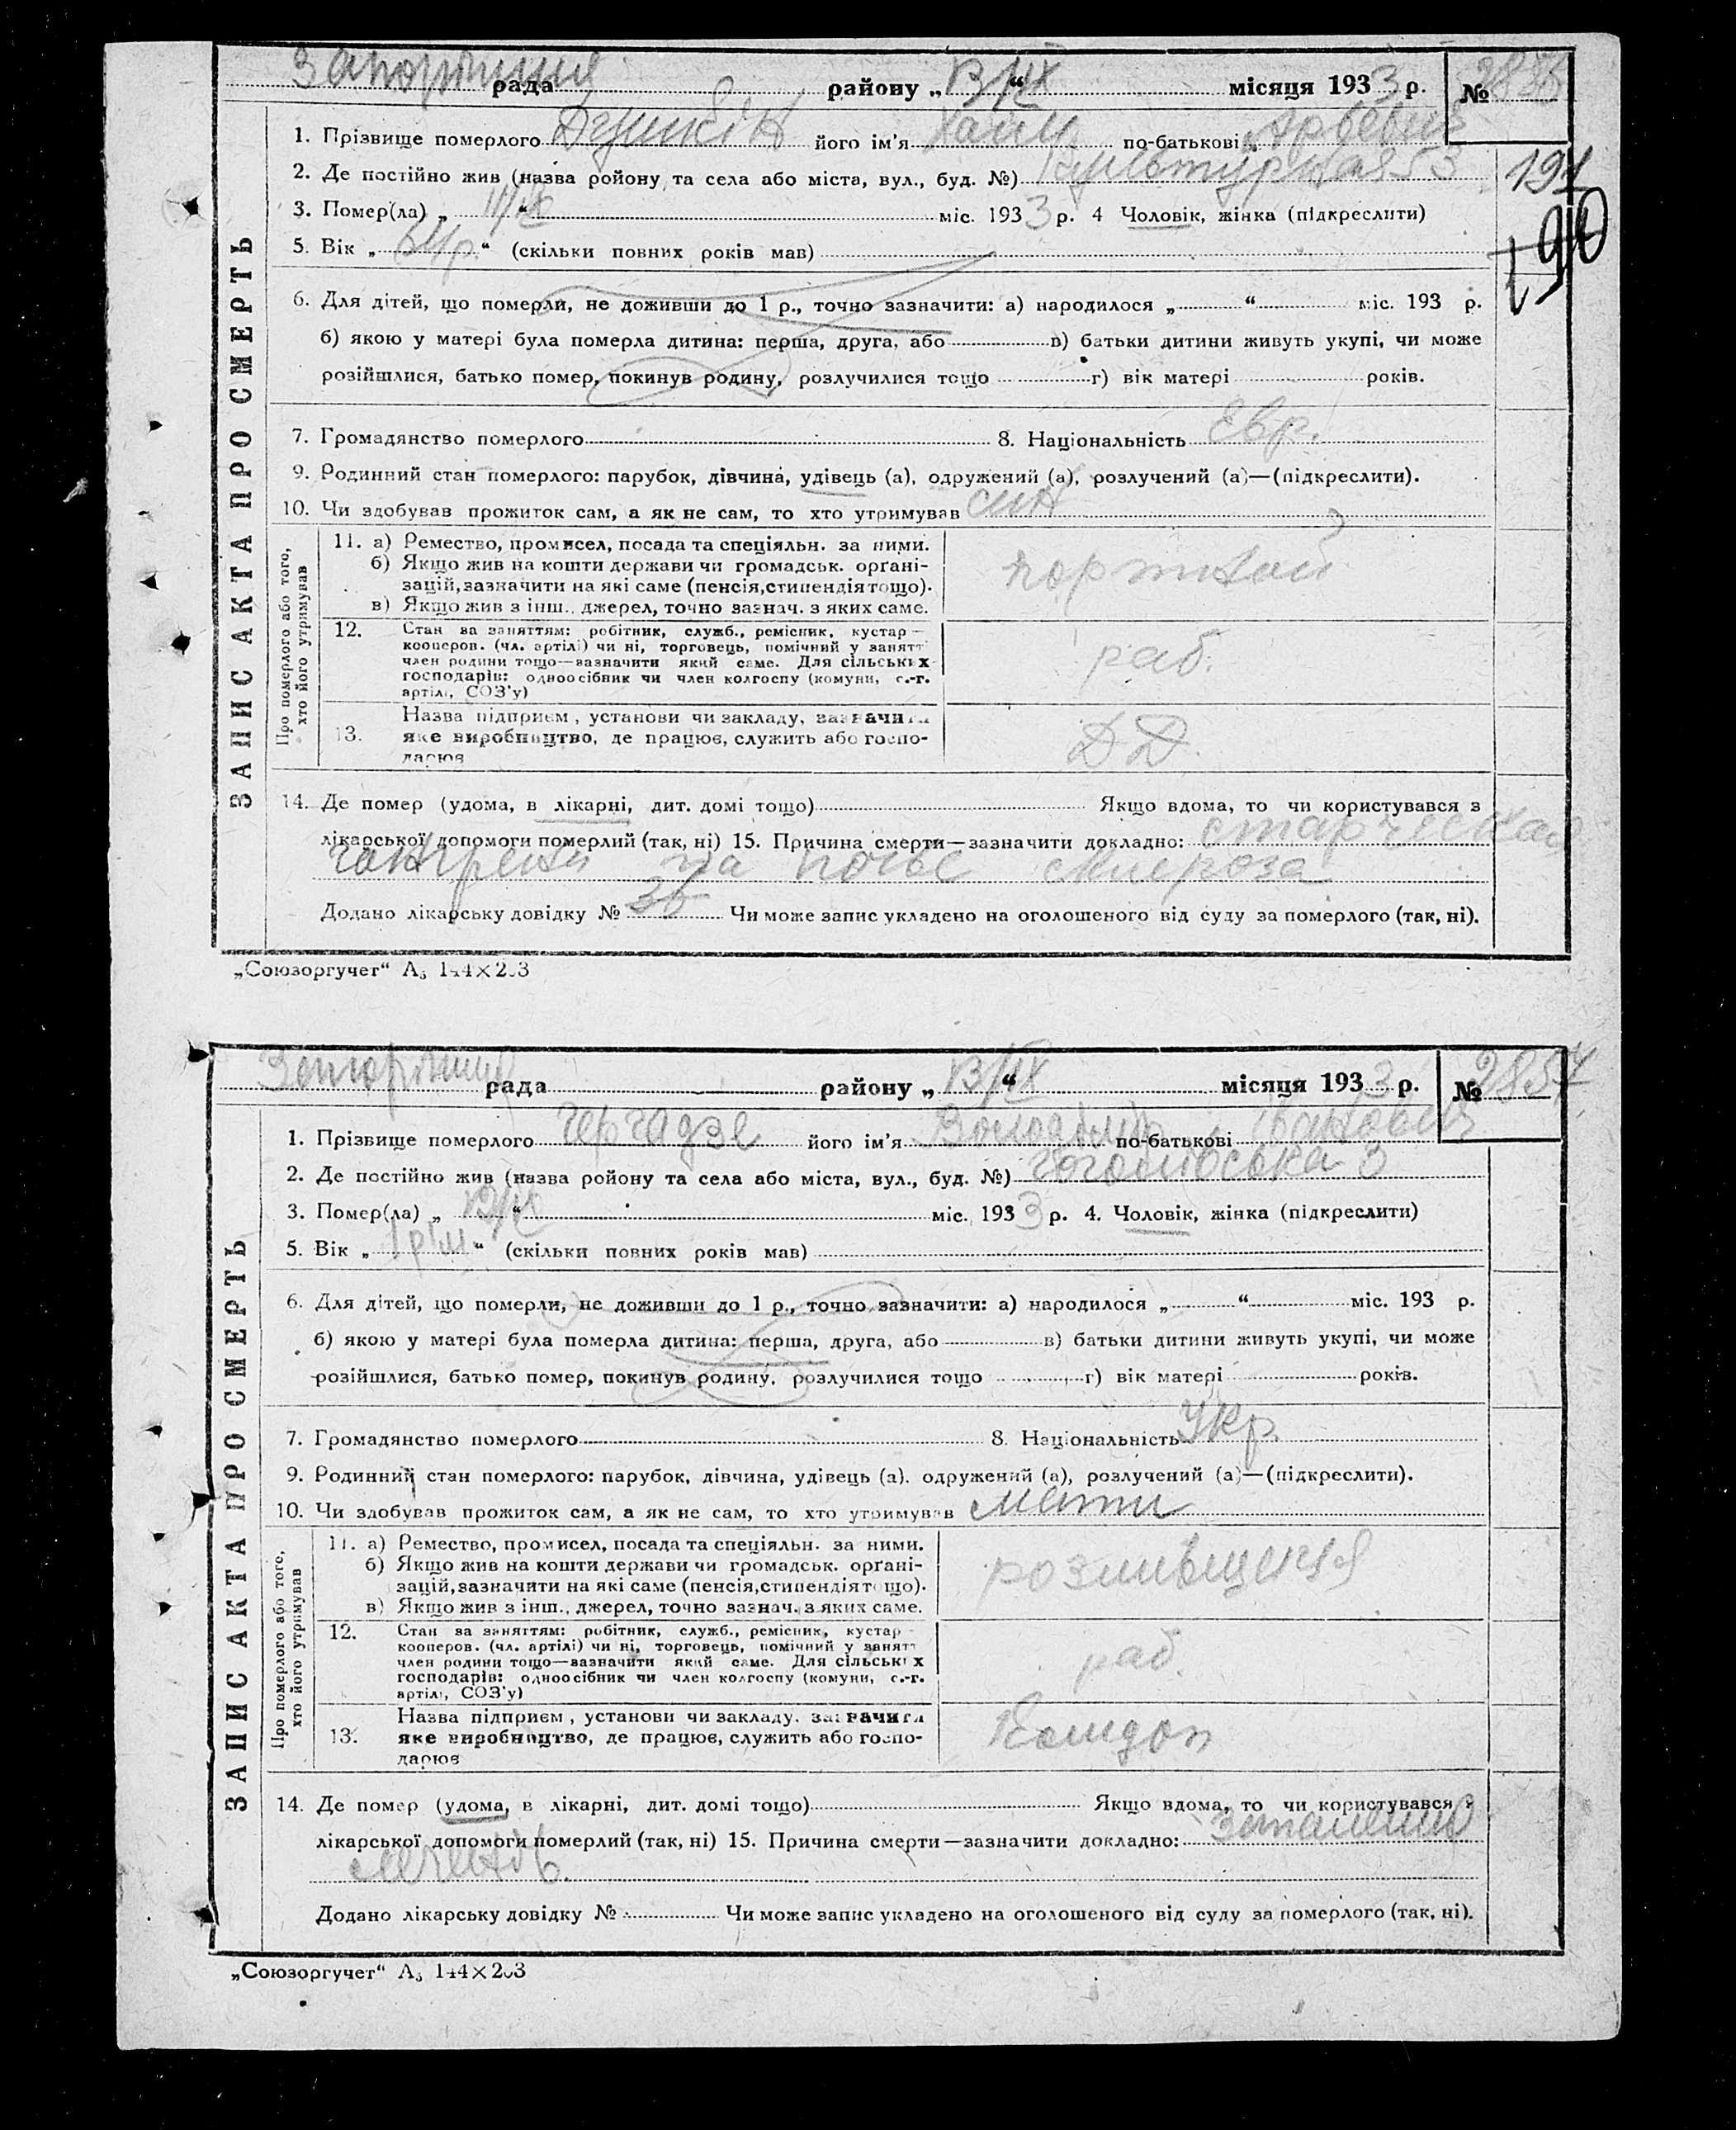 Запоріжжя рада району „13/IX“ місяця 1933 р. № 2856
1. Прізвище померлого його ім'я Хаим по-батькові
2. Де постійно жив (назва ройону та села або міста, вул., буд. №) Культурная 53
191
3. Помер(ла) „11/IX“ міс. 1933 р. 4 Чоловік, жінка (підкреслити)
190
5. Вік „ “ (скільки повних років мав)
6. Для дітей, що померли, не доживши до 1 р., точно зазначити: а) народилося „ “ міс. 193 р.
б) якою у матері була померла дитина: перша, друга, або в) батьки дитини живуть укупі, чи може
розійшлися, батько помер, покинув родину, розлучилися тощо г) вік матері років.
7. Громадянство померлого 8. Національність Евр.
9. Родинний стан померлого: парубок, дівчина, удівець (а), одружений (а), розлучений (а)—(підкреслити).
10. Чи здобував прожиток сам, а як не сам, то хто утримував син
ЗАПИС АКТА ПРО СМЕРТЬ
Про померлого або того, хто його утримував
11. а) Ремество, промисел, посада та спеціяльн. за ними.
б) Якщо жив на кошти держави чи громадськ. орґані-
зацій, зазначити на які саме (пенсія, стипендія тощо).
в) Якщо жив з інш., джерел, точно зазнач. з яких саме.
портной
12. Стан за заняттям: робітник, служб., ремісник, кустар—
кооперов. (чл. артілі) чи ні, торговець, помічний у занятт
член родини тощо—зазначити який саме. Для сільських
господарів: одноосібник чи член колгоспу (комуни, с.-г.
артілі, СОЗ'у)
раб.
13. Назва підприєм, установи чи закладу, зазначити
яке виробництво, де працює, служить або госпо-
дарює
ДД.
14. Де помер (удома, в лікарні, дит. домі тощо) Якщо вдома, то чи користувався з
лікарської допомоги померлий (так, ні) 15. Причина смерти—зазначити докладно: старческая
гангрена на почве склероза
Додано лікарську довідку № 36 Чи може запис укладено на оголошеного від суду за померлого (так, ні).
„Союзоргучет“ А₅ 144×203
Запоріжжя рада району „13/IX“ місяця 1933 р. № 2857
1. Прізвище померлого Чергадзе його ім'я Володимир по-батькові Іванович
2. Де постійно жив (назва ройону та села або міста, вул., буд. №) Гоголівська 3
3. Помер(ла) „12/IX“ міс. 1933 р. 4. Чоловік, жінка (підкреслити)
5. Вік „ “ (скільки повних років мав)
6. Для дітей, що померли, не доживши до 1 р., точно зазначити: а) народилося „ “ міс. 193 р.
б) якою у матері була померла дитина: перша, друга, або в) батьки дитини живуть укупі, чи може
розійшлися, батько помер, покинув родину, розлучилися тощо г) вік матері років.
7. Громадянство померлого 8. Національність Укр.
9. Родинний стан померлого: парубок, дівчина, удівець (а). одружений (а), розлучений (а)—(підкреслити).
10. Чи здобував прожиток сам, а як не сам, то хто утримував мати
ЗАПИС АКТА ПРО СМЕРТЬ
Про померлого або того, хто його утримував
11. а) Ремество, промисел, посада та спеціяльн. за ними.
б) Якщо жив на кошти держави чи громадськ. орґані-
зацій, зазначити на які саме (пенсія, стипендія тощо).
в) Якщо жив з інш., джерел, точно зазнач. з яких саме.
12. Стан за заняттям: робітник, служб., ремісник, кустар—
кооперов. (чл. артілі) чи ні, торговець, помічний у занятт
член родини тощо—зазначити який саме. Для сільських
господарів: одноосібник чи член колгоспу (комуни, с.-г.
артілі, СОЗ'у)
раб.
13. Назва підприєм, установи чи закладу. зазначити
яке виробництво, де працює, служить або госпо-
дарює
14. Де помер (удома, в лікарні, дит. домі тощо) Якщо вдома, то чи користувався з
лікарської допомоги померлий (так, ні) 15. Причина смерти—зазначити докладно: запалення
легенів.
Додано лікарську довідку № Чи може запис укладено на оголошеного від суду за померлого (так, ні).
„Союзоргучет“ А₅ 144×203